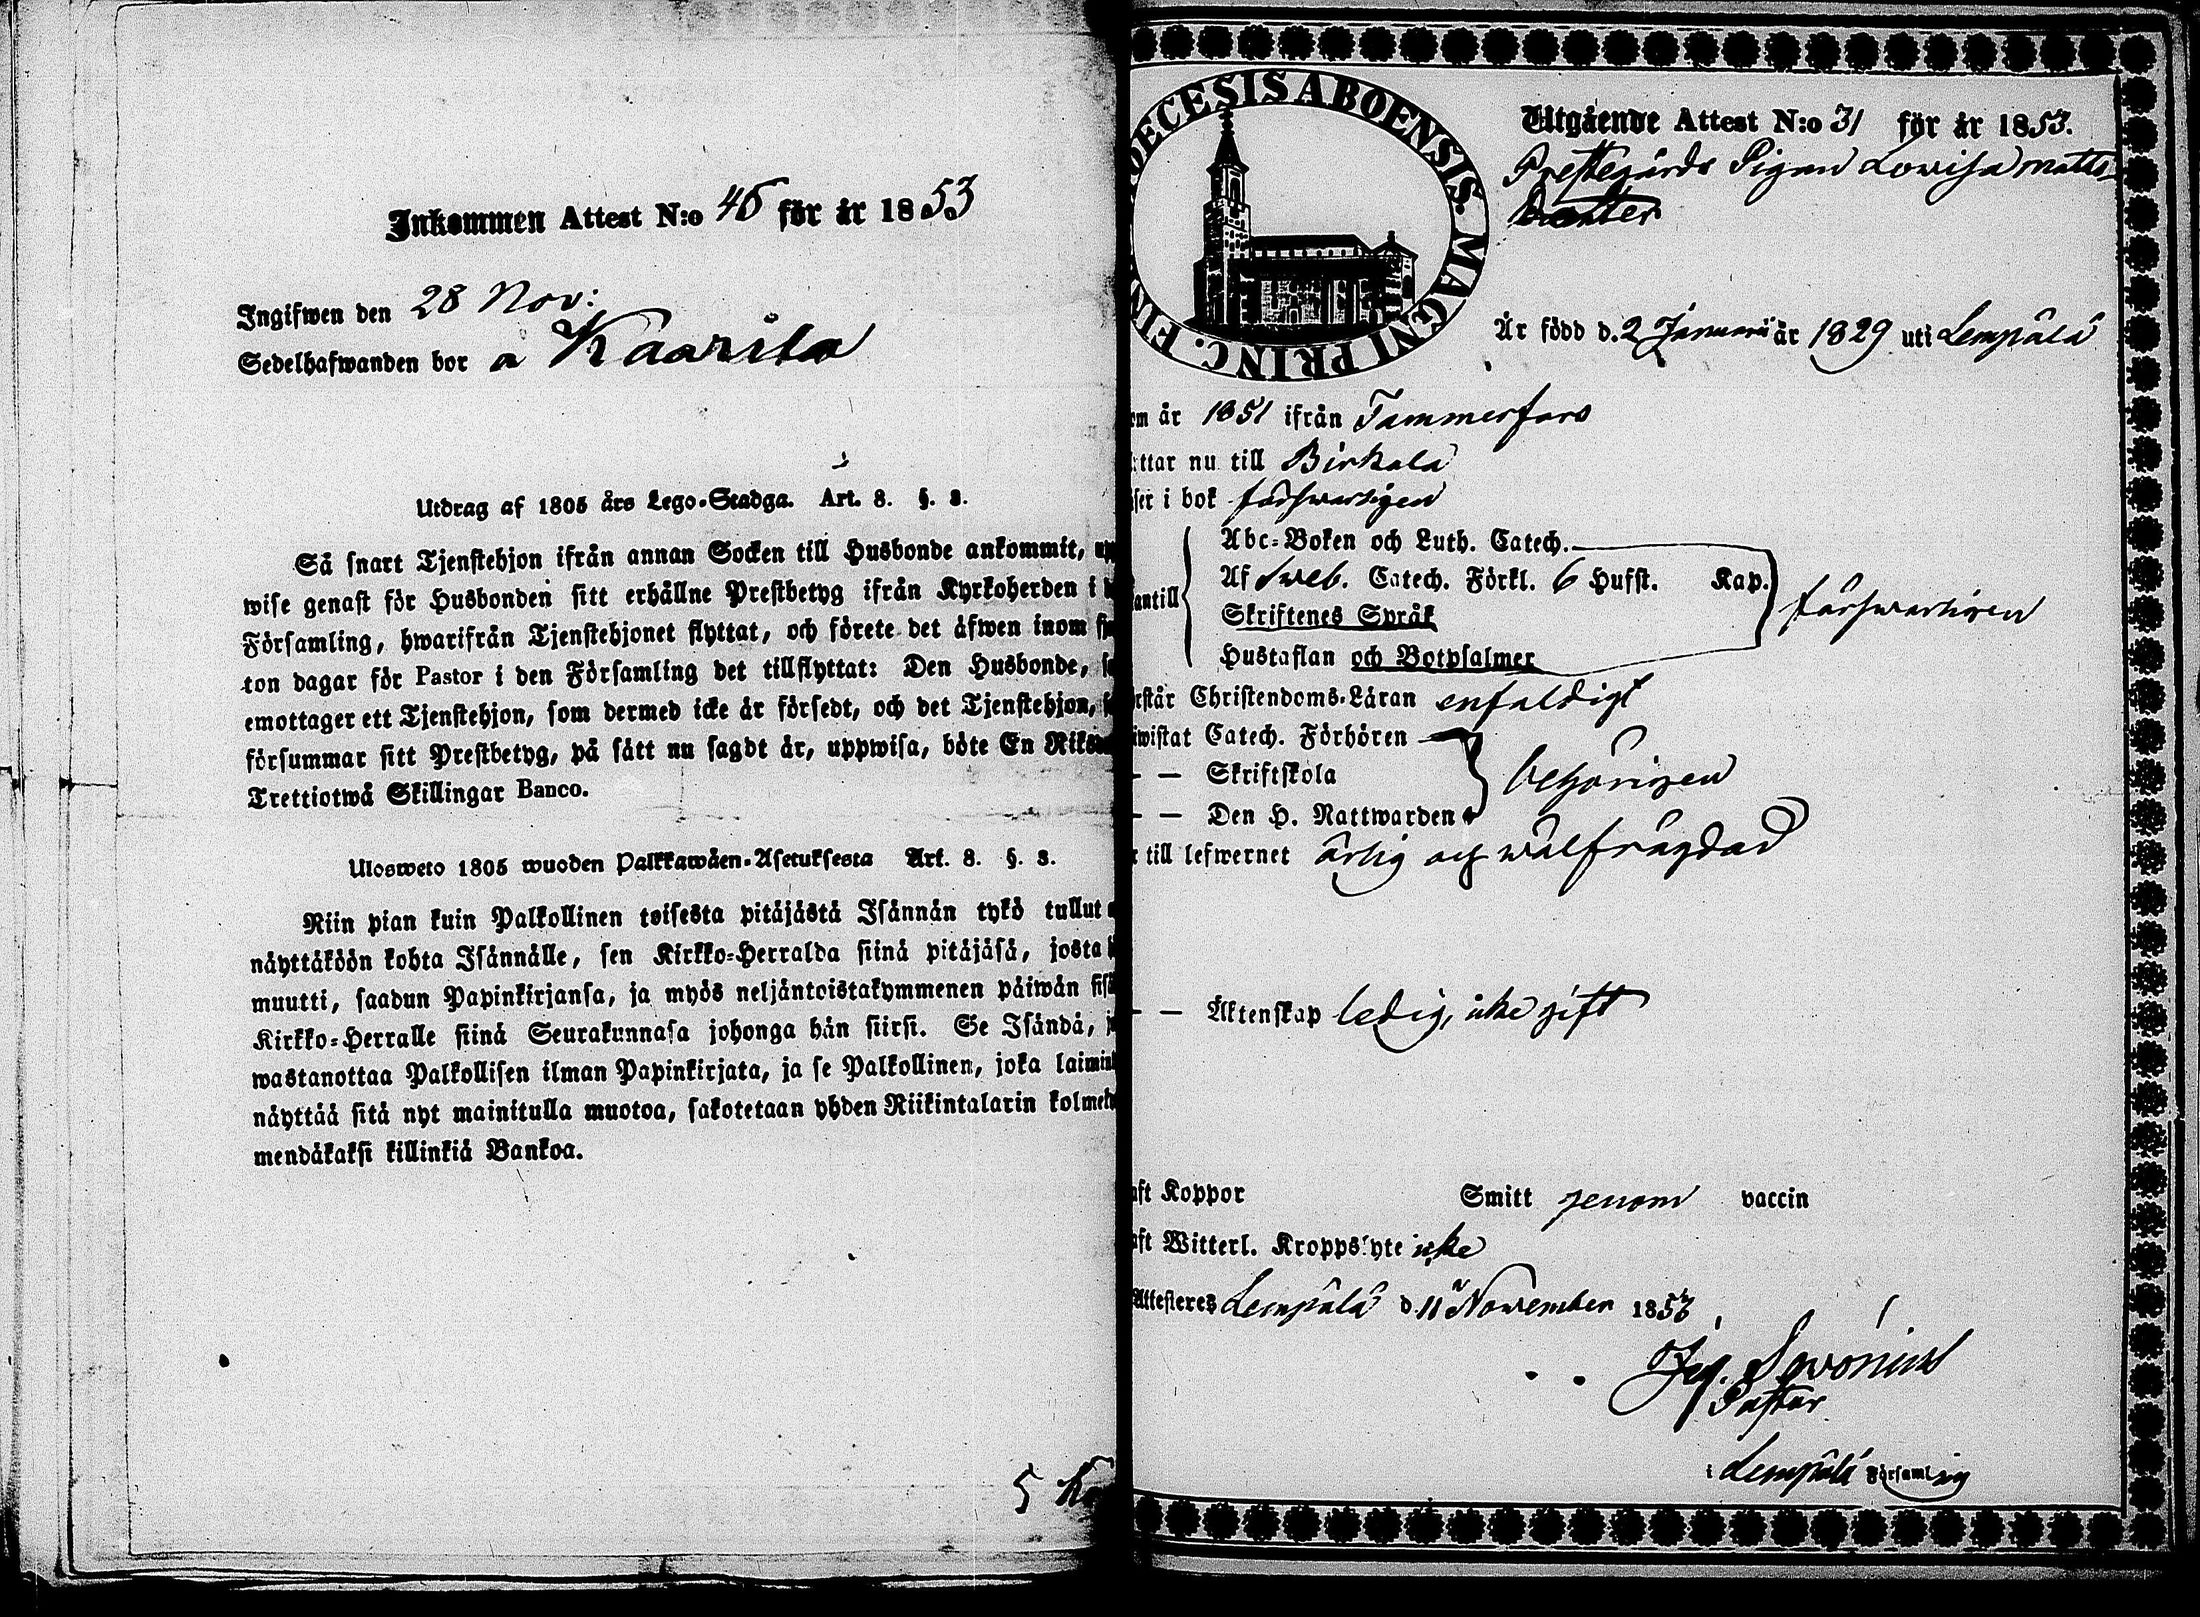 Inkommen Attest N:o 46 för år 1853
Ingifwen den 28 Nov:
Sedelhafwanden bor a Kaarila
Utdrag af 1805 års Lego-Stadga. Art. 8. §. 8.
Så snart Tjenstehjon ifrån annan Socken till Husbonde ankommit,
wise genast för Husbonden sitt erhållne Prestbetyg ifrån Kyrkoherden i
Församling, hwarifrån Tjenstehjonet flyttat, och förete det äfwen inom
ton dagar för Pastor i den Församling det tillflyttat: Den Husbonde,
emottager ett Tjenstehjon, som dermed icke är försedt, och det Tjenstehjon,
försummar sitt Prestbetyg, på sätt nu sagdt är, uppwisa, böte En
Trettiotwå Skillingar Banco.
Ulosweto 1805 wuoden Palkkawäen-Asetuksesta Art. 8. §. 8.
Niin pian kuin Palkollinen toisesta pitäjästä Isännän tykö tullut
näyttäköön kohta Isännälle, sen Kirkko-Herralda siinä pitäjäsä, josta
muutti, saadun Papinkirjansa, ja myös neljäntoistakymmenen päiwän
Kirkko-Herralle siinä Seurakunnasa johonga hän siirsi. Se Isändä,
wastanottaa Palkollisen ilman Papinkirjata, ja se Palkollinen, joka
näyttää sitä nyt mainitulla muotoa, sakotetaan yhden Riikintalarin
mendäkaksi killinkiä Bankoa.
5
DECESIS ABOENSIS. MAGNI PRINC. FIN
Utgående Attest N:o 31 för år 1853.
Prestegårds Pigan Lovisa Matts
Dotter
Är född d. 2 Januari år 1829 uti Lempälä
om år 1851 ifrån Tammerfors
ttar nu till Birkala
ser i bok förswarligen
Abc-Boken och Luth. Catech.
antill Af Sweb. Catech. Förkl. 6 Hufst. Kap. förswarligen
Skriftenes Språk
Hustaflan och Botpsalmer
rstår Christendoms-Läran enfaldigt
iwistat Catech. Förhören
— — Skriftskola behörigen
— — Den H. Nattwarden
r till lefwernet ärlig och wälfrägdad
— — Äktenskap ledig, icke gift
aft Koppor Smitt genom vaccin
aft Witterl. Kroppslyte icke
Attesteres Lempälä d. 11 November 1853
Pastor
i Lempälä Församling